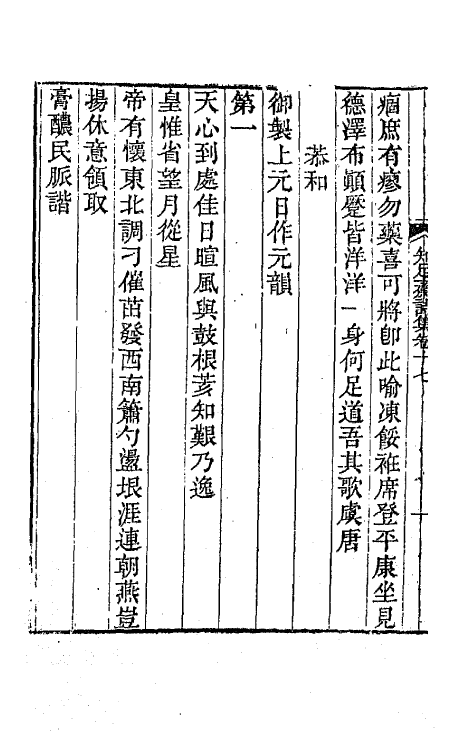 知足齋詩集卷十七
痼庶有瘳勿藥喜可將即此喻凍餒袵席登平康坐見
德澤布顛躄皆洋洋一身何足道吾其歌虞唐
恭和
御製上元日作元韻
第一
天心到處佳日暄風與鼓根荄知艱乃逸
皇惟省望月從星
帝有懷東北調刁催苗發西南簫勺盪垠涯連朝燕豈
揚休意領取
膏醲民脈諧